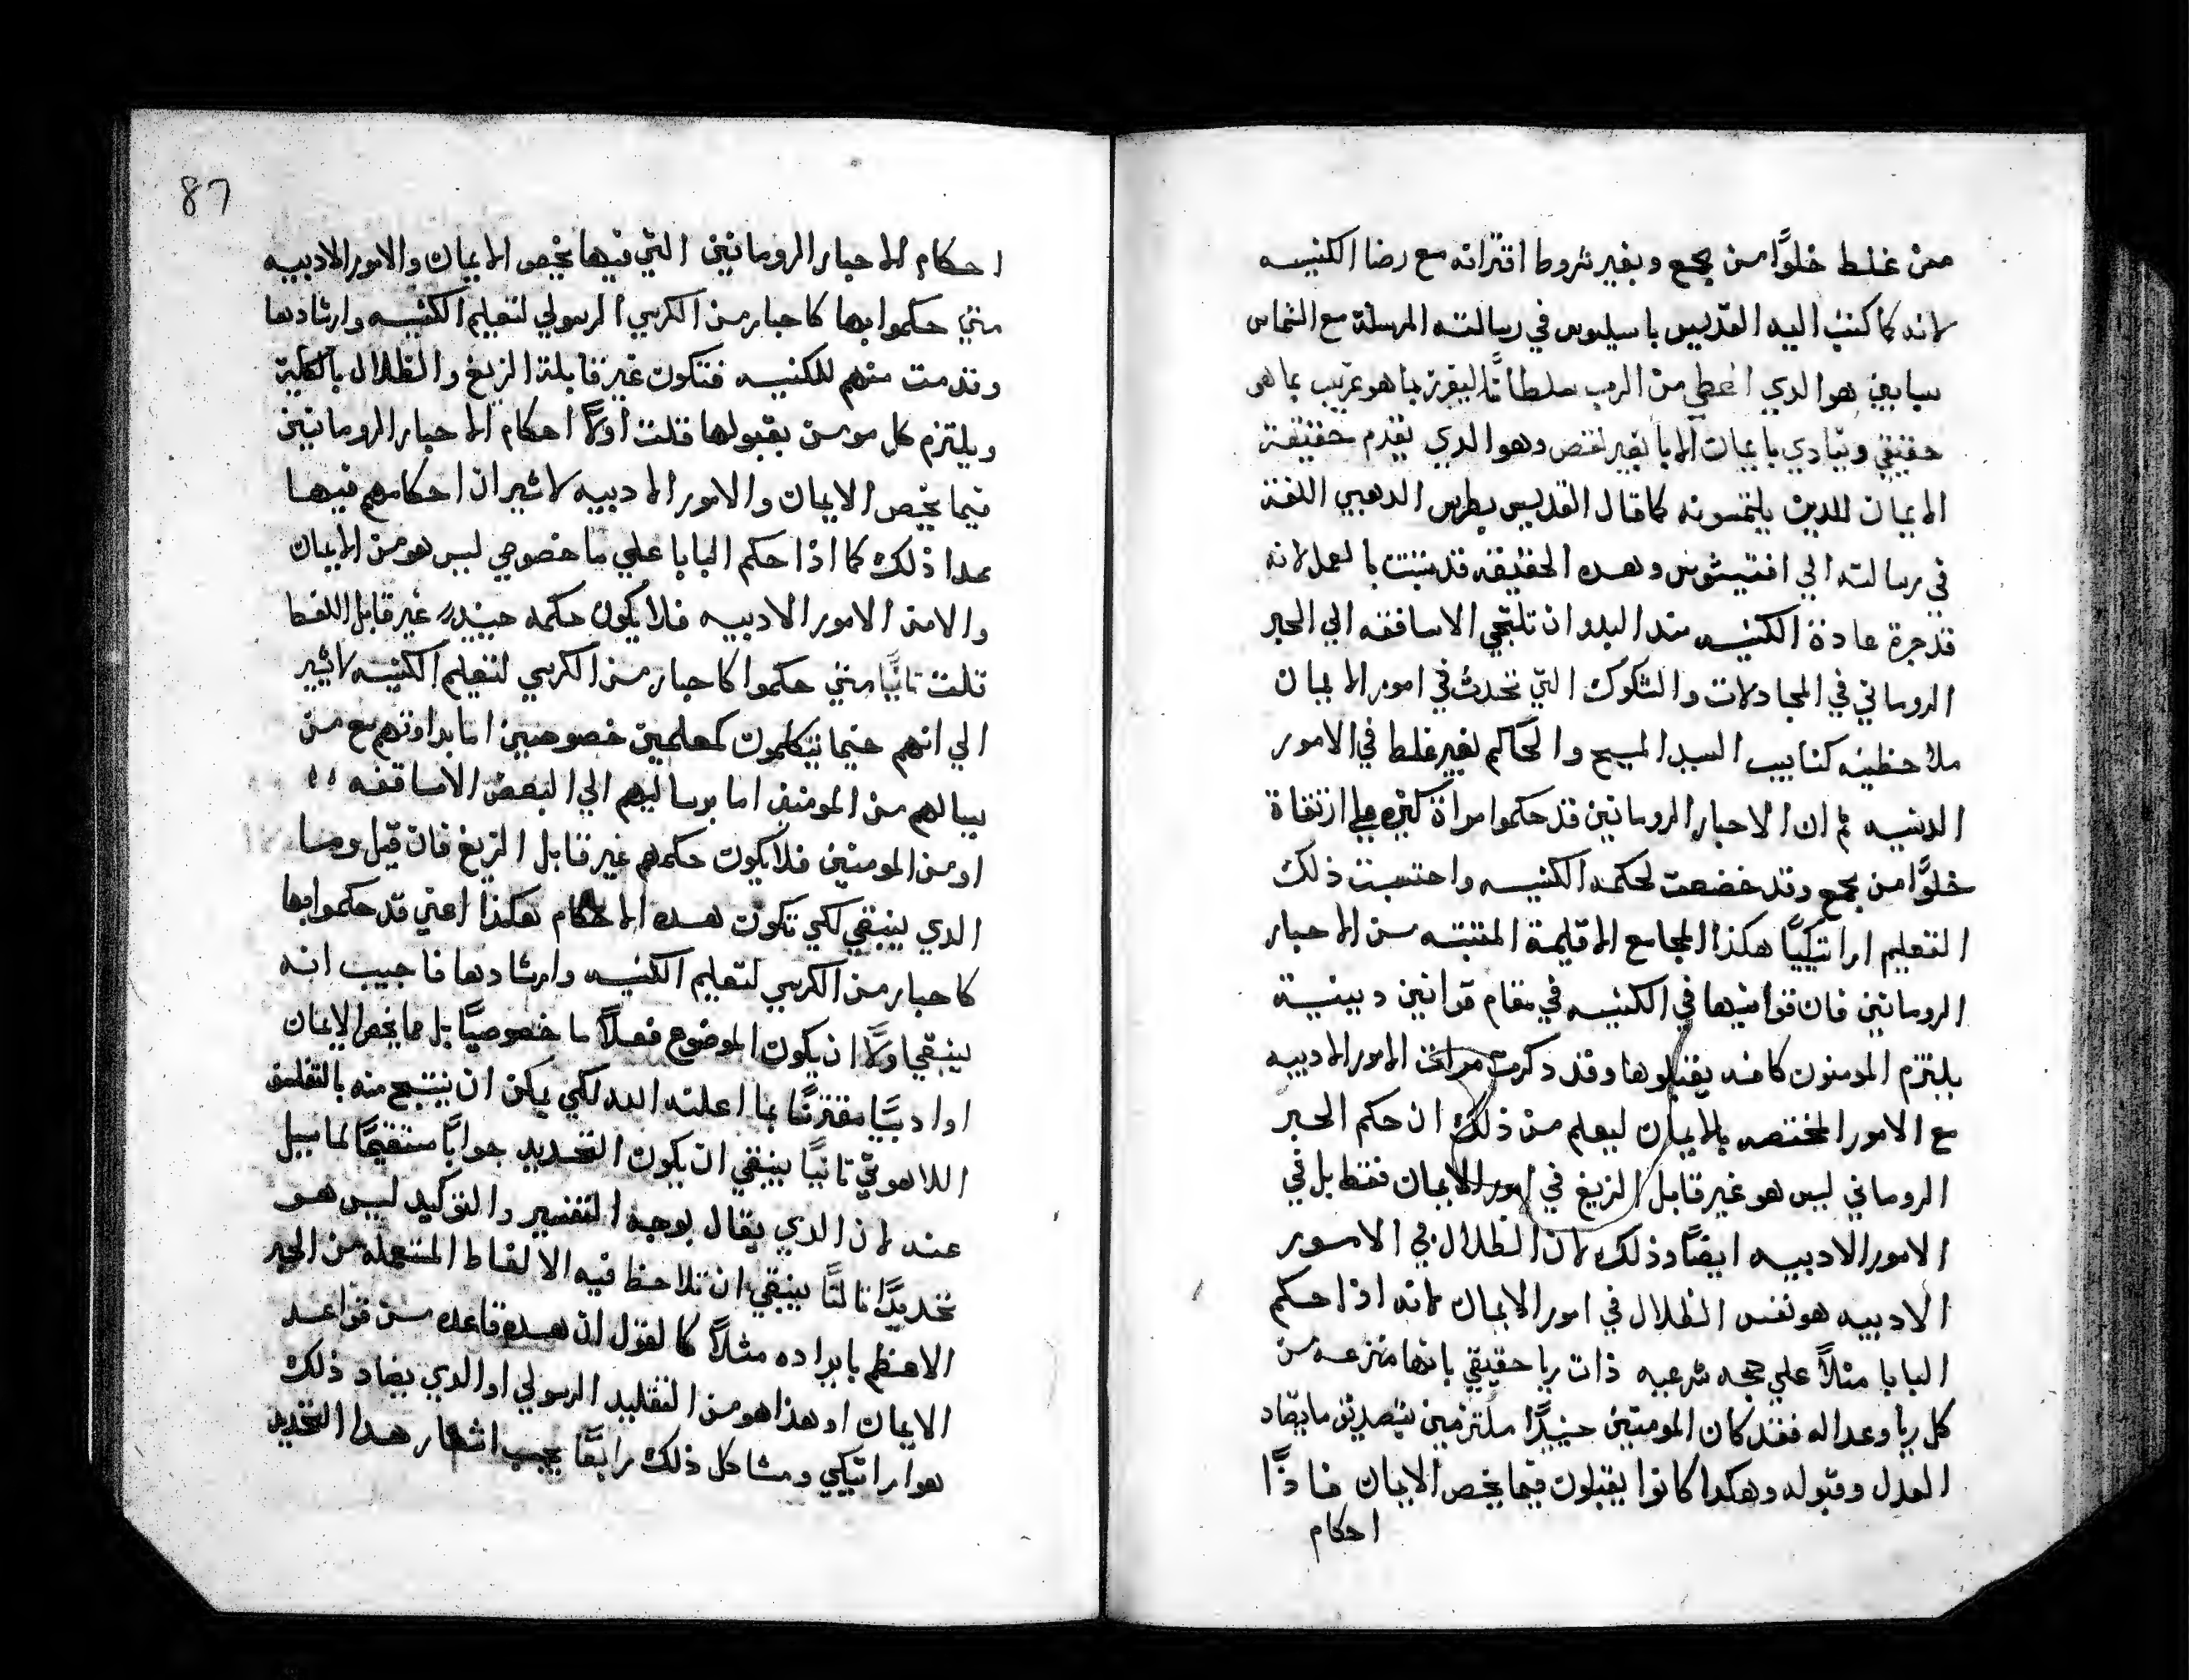 ممن غلط خلوًا من مجمع وبغير شروط اقترانه مع رضا الكنيسه
لانه كما كتب اليه القديس باسيليوس في رسالته المرسلة مع الشماس
سابين هو الدي اعطي من الرب سلطانًا ليفرز ما هو غريب بما هو
حقيقي وينادي بايمان الابا بغير نقص وهو الدي يقدم حقيقة
الايمان للدين يلتمسونه كما قال القديس بطرس الدهبي اللفة
في رسالته الي افتيشوس وهده الحقيقه قد تبتت بالعمل لانه
قد جرة عادة الكنيسه مند البدو ان تلتجي الاساقفه الي الحبر
الروماني في المجادلات والشكوك التي تحدث في امور الايمان
ملاحظينه كنايب السيد المسيح والحاكم بغير غلط في الامور
الدينيه ثم ان الاحبار الرومانين قد حكموا مراة كثيره علي ارتقاة
خلوًا من مجمع وقد خضعت لحكمه الكنيسه واحتسبت ذلك
التعليم اراتيكيًا هكذا المجامع الاقليمة المتبته من الاحبار
الرومانين فان قوانينها في الكنيسه في مقام قوانين دينية
يلتزم المومنون كافه يقبلوها وقد دكرت مرافق الامور الادبيه
مع الامور المختصه بالايمان ليعلم من ذلك ان حكم الحبر
الروماني ليس هو غير قابل الزيغ في امور الايمان فقط بل في
الامور الادبيه ايضًا وذلك لان الظلال في الامور
الادبيه هو نفس الظلال في امور الايمان لانه اذا حكم
البابا مثلاً علي حجه شرعيه ذات ربا حقيقي بانها منزعه من
كل ربا وعداله فقد كان المومنين حينيدًا ملتزمين بتصديق ما يضاد
العدل وقبوله وهكدا كانوا يقبلون فيما يخص الايمان فاذًا
احكام
87
احكام الاحبار الرومانين التي فيها يخص الايمان والامور الادبيه
متي حكموا بها كاحبار من الكرسي الرسولي لتعليم الكنيسه وارشادها
وقدمت منهم للكنيسه فتكون غير قابلة الزيغ والظلال بالكلية
ويلتزم كل مومن بقبولها قلت اولاً احكام الاحبار الرومانين
فيما يخص الايمان والامور الادبيه لاشير ان احكامهم فيها
عدا ذلك كما اذا حكم البابا علي ما خصوصي ليس هو من الايمان
والامن الامور الادبيه فلا يكون حكمه حينيد غير قابل الغلط
قلت تانيًا متي حكموا كاحبار من الكرسي لتعليم الكنيسه لاشير
الي انهم حينما يتكلمون كمعلمين خصوصين اما بمراوتهم مع من
يسالهم من المومنين اما برسايلهم الي البعض الاساقفه
او من المومنين فلا يكون حكمهم غير قابل الزيغ فان قيل وما
الدي ينبقي لكي تكون هده الاحكام هكذا اعني قد حكموا بها
كاحبار من الكرسي لتعليم الكنيسه وارشادها فاجيب انه
ينبقي اولاً ان يكون الموضوع فعلاً ما خصوصيًا بل ما يخص الايمان
او ادبيًا مقترنًا بما اعلنه الله لكي يمكن ان ينتج منه بالتقليد
اللاهوتي تانيًا ينبقي ان يكون التحديد جوابًا مستقيمًا لما سيل
عنه لان الدي يقال بوجه التفسير والتوكيد ليس هو
تحديدًا تالتًا ينبقي ان تلاحظ فيه الالفاظ المستعمله من الحبر
الاعظم بايراده مثلاً كالقول ان هده قاعده من قواعد
الايمان او هذا هو من التقليد الرسولي او الدي يضاد ذلك
هو اراتيكي ومشاكل ذلك رابعًا يجب اشهار هدا التحديد